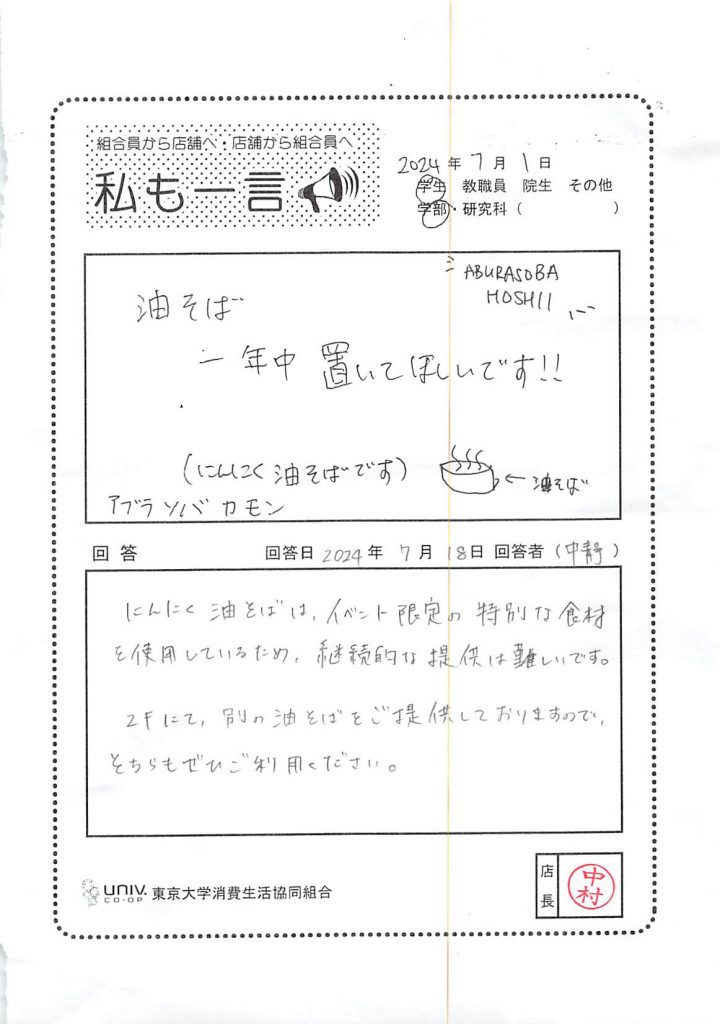 組合員から店舗へ・店舗から組合員へ
私も一言
2024年 7月 1日
学生 教職員 院生 その他
学部・研究科 ( )
ABURASOBA
HOSHII
油そば
一年中 置いてほしいです!!
(にんにく油そばです)
←油そば
アブラソバ カモン
回答 回答日 2024年 7月 18日 回答者 (中静)
にんにく油そばは、イベント限定の特別な食材
を使用しているため、継続的な提供は難しいです。
2Fにて、別の油そばをご提供しておりますので、
そちらもぜひご利用ください。
UNIV. CO-OP 東京大学消費生活協同組合
店長
中村